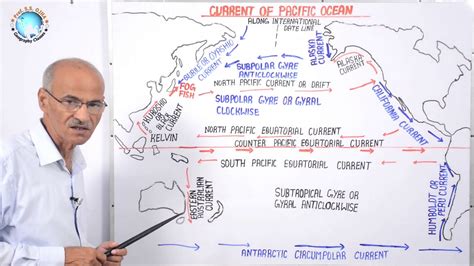 CURRENT OF PACIFIC OCEAN
Prof. S.S. OJHA
Geography Classes
ALONG INTERNATIONAL
DATE LINE
KURILE OR OYASHIO
CURRENT
SUBPOLAR GYRE
ANTICLOCKWISE
ALASKA
CURRENT
ALASKA
CURRENT
FOG
FISH
NORTH PACIFIC CURRENT OR DRIFT
SUBPOLAR GYRE OR GYRAL
CLOCKWISE
CALIFORNIA CURRENT
KUROSHIO
OR BLACK
CURRENT
KELVIN
NORTH PACIFIC EQUATORIAL CURRENT
COUNTER PACIFIC EQUATORIAL CURRENT
SOUTH PACIFIC EQUATORIAL CURRENT
EASTERN
AUSTRALIAN
CURRENT
SUBTROPICAL GYRE OR
GYRAL ANTICLOCKWISE
HUMBOLDT OR
PERU CURRENT
ANTARCTIC CIRCUMPOLAR CURRENT